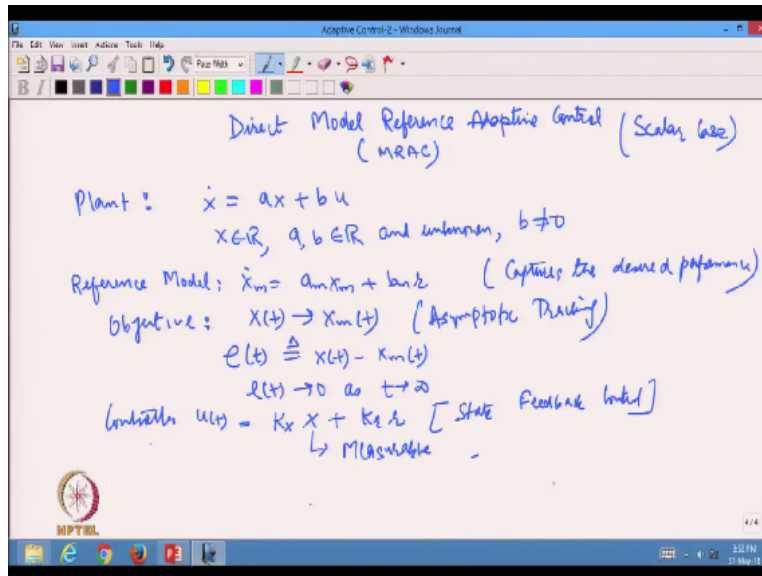 Adaptive Control-2 - Windows Journal
File Edit View Insert Actions Tools Help
Page Width
B I
Direct Model Reference Adaptive Control (Scalar Case)
(MRAC)
Plant : ẋ = ax + bu
x∈ℝ, a, b ∈ℝ and unknown, b≠0
Reference Model: ẋm = am xm + bm r (Captures the desired performance)
Objective : x(t) → xm(t) (Asymptotic Tracking)
e(t) ≜ x(t) - xm(t)
e(t) → 0 as t→∞
Controller u(t) = Kx x + Kr r [State Feedback Control]
↳ Measurable
NPTEL
4/4
3:52 PM
31-May-18